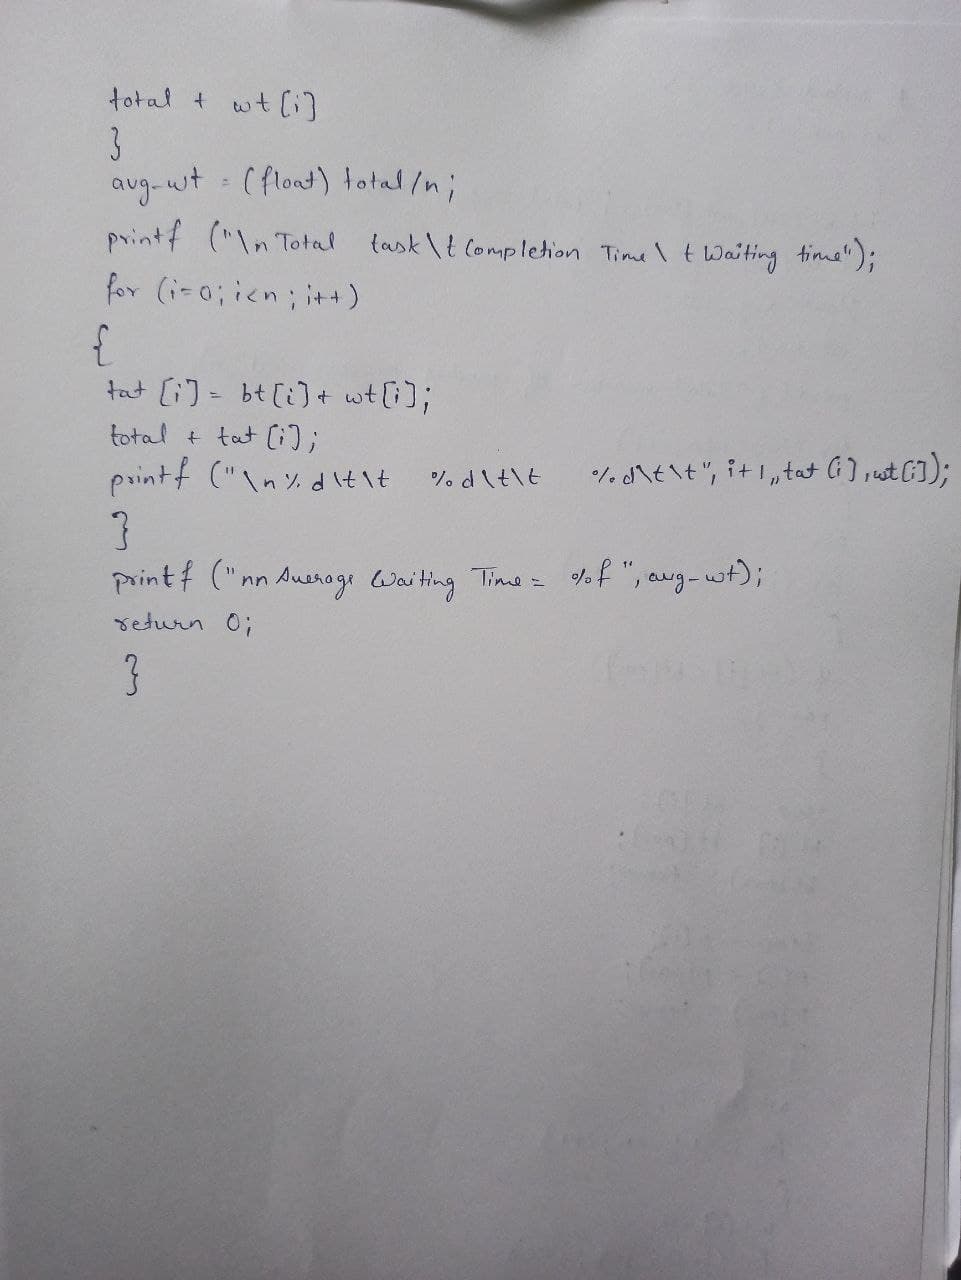 total + wt [i]
}
avg-wt = (float) total/n;
printf ("\n Total task\t Completion Time \t Waiting time");
for (i=0; i<n; i++)
{
tat [i] = bt[i] + wt[i];
total + tat [i];
printf ("\n % d\t\t %d\t\t %d\t\t", i+1,,tat [i], wt[i]);
}
printf ("nn Average Waiting Time = %f ", avg-wt);
return 0;
}